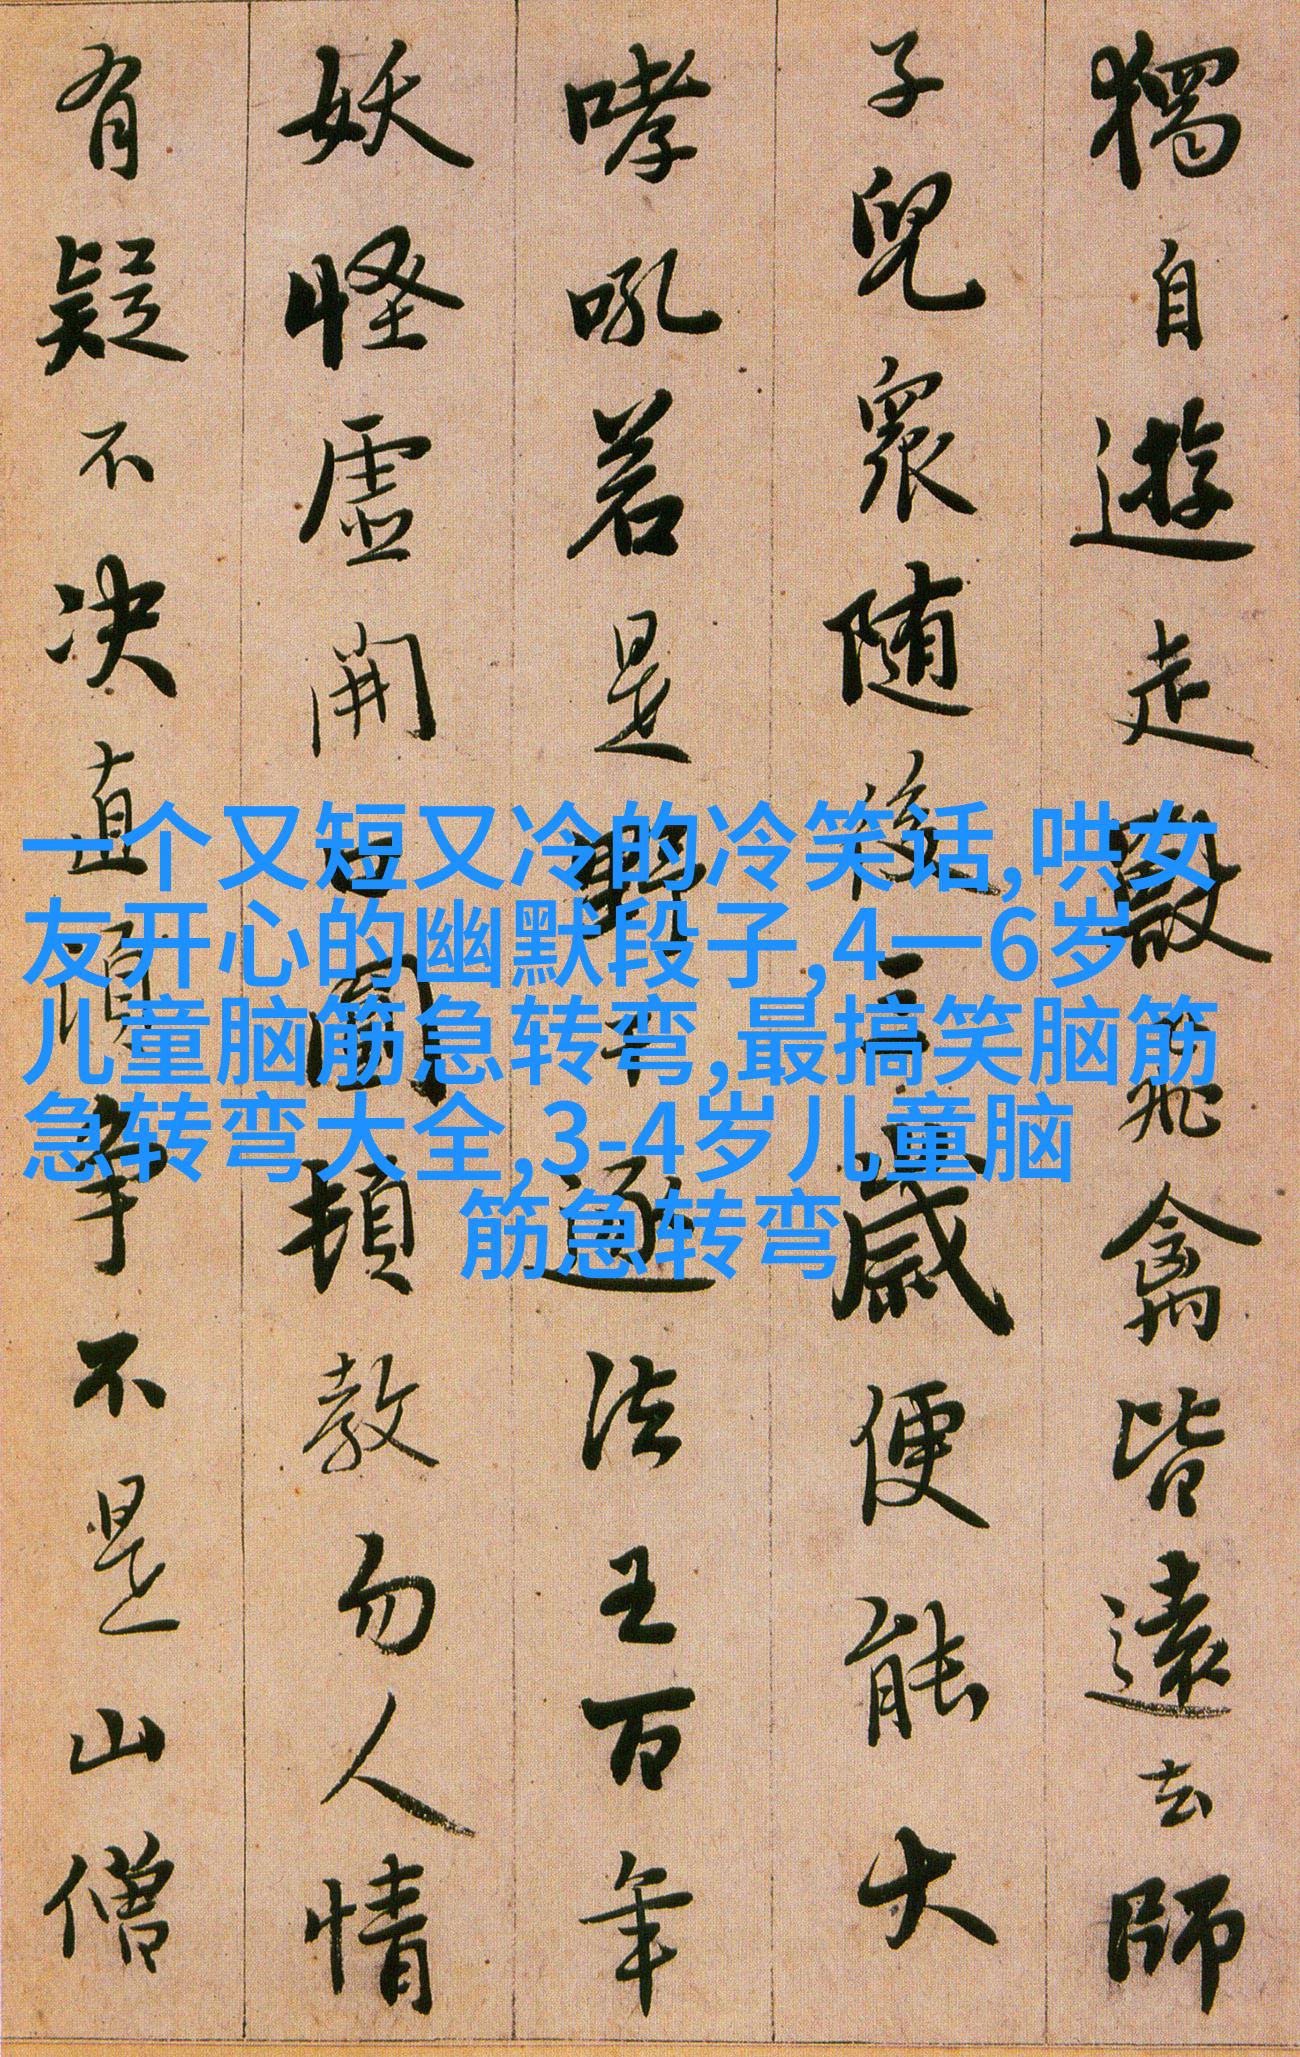 獨自遊走獸飛禽皆遠去師
子兒衆随後三歲便能大
哮吼若是野干逐法王百年
妖怪虚開口圓頓教勿人情
有疑不决直須争不是山僧
一个又短又冷的冷笑话,哄女
友开心的幽默段子,4一6岁
儿童脑筋急转弯,最搞笑脑筋
急转弯大全,3-4岁儿童脑
筋急转弯